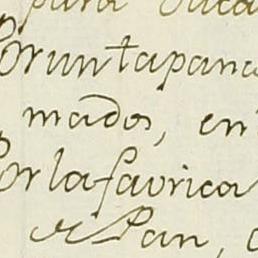 para
Por un tapana
mado, en
Por la favrica
de Pan,